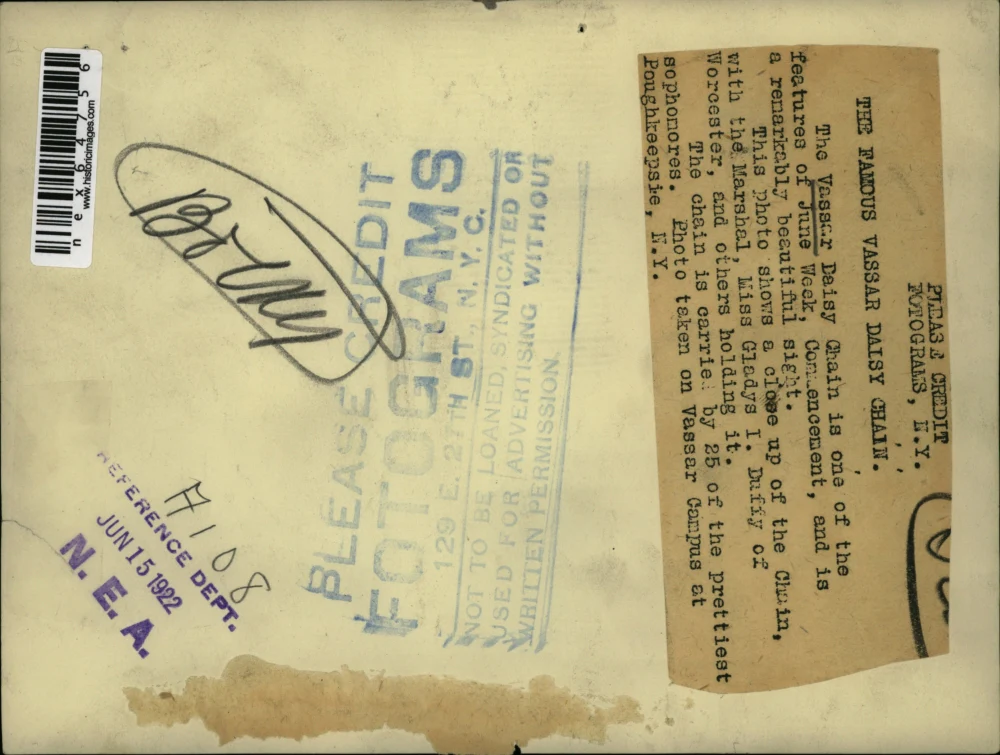 PLEASE CREDIT
FOTOGRAMS, N.Y.
THE FAMOUS VASSAR DAISY CHAIN.
The Vassar Daisy Chain is one of the
features of June Week, Commencement, and is
a remarkably beautiful sight.
This photo shows a close up of the Chain,
with the Marshal, Miss Gladys I. Duffy of
Worcester, and others holding it.
The chain is carried by 25 of the prettiest
sophomores. Photo taken on Vassar Campus at
Poughkeepsie, N.Y.
PLEASE CREDIT
FOTOGRAMS
129 E. 27TH ST., N. Y. C.
NOT TO BE LOANED, SYNDICATED OR
USED FOR ADVERTISING WITHOUT
WRITTEN PERMISSION.
A108
REFERENCE DEPT.
JUN 15 1922
N. E. A.
nex64756
www.historicimages.com